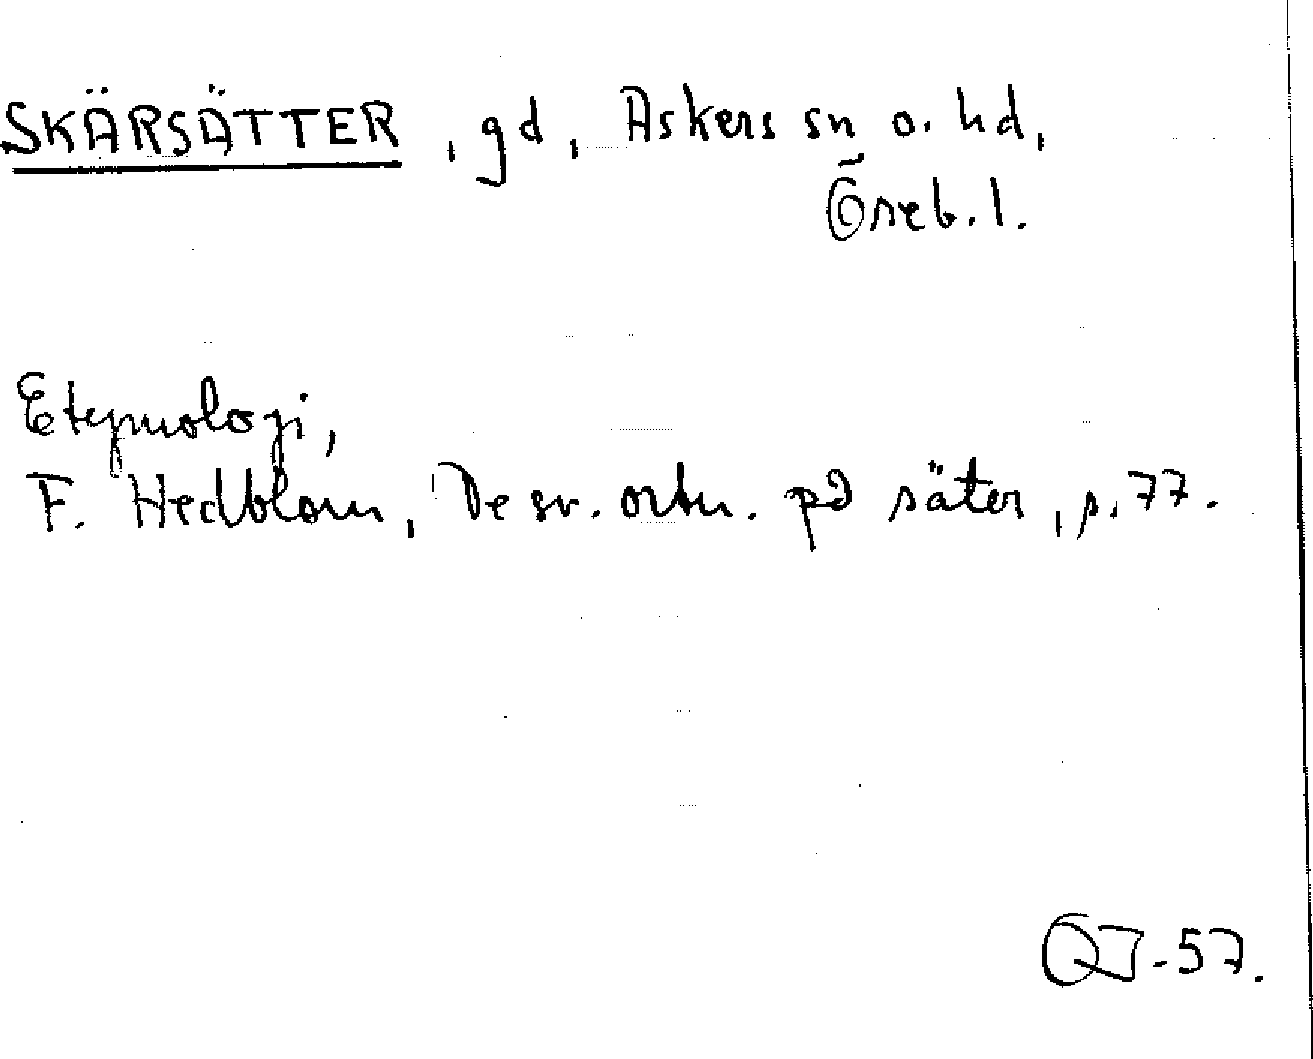 SKÄRSÄTTER, gd, Askers sn o. hd,
Öreb. l.
Etymologi,
F. Hedblom, De sv. ortn. på säter, s. 77.
QJ-57.